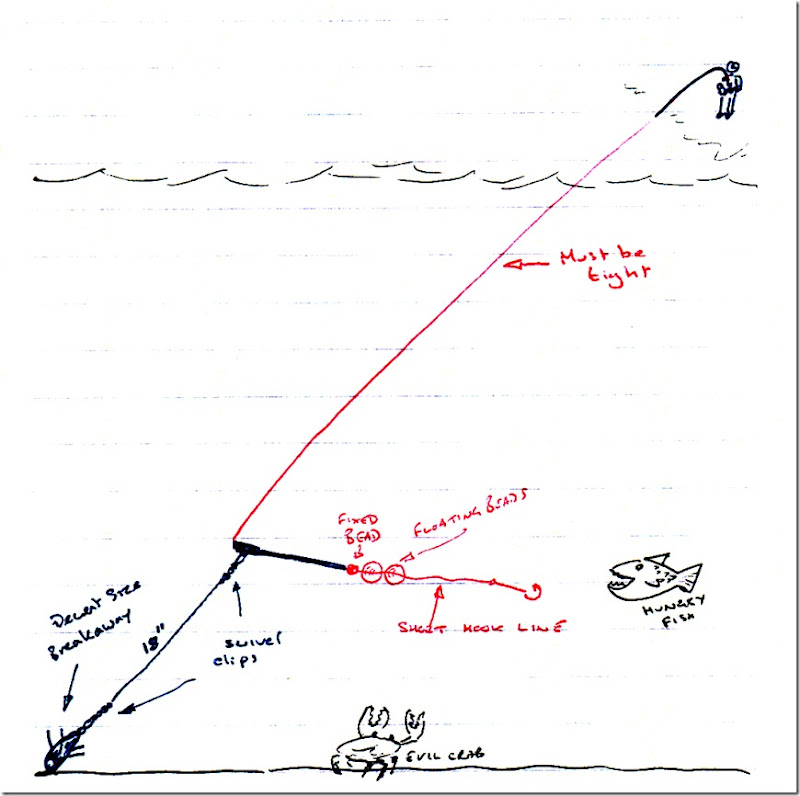 Must be
tight
FIXED
BEAD
FLOATING BEADS
HUNGRY
FISH
SHORT HOOK LINE
Decent Size
Breakaway
18"
swivel
clips
EVIL CRAB